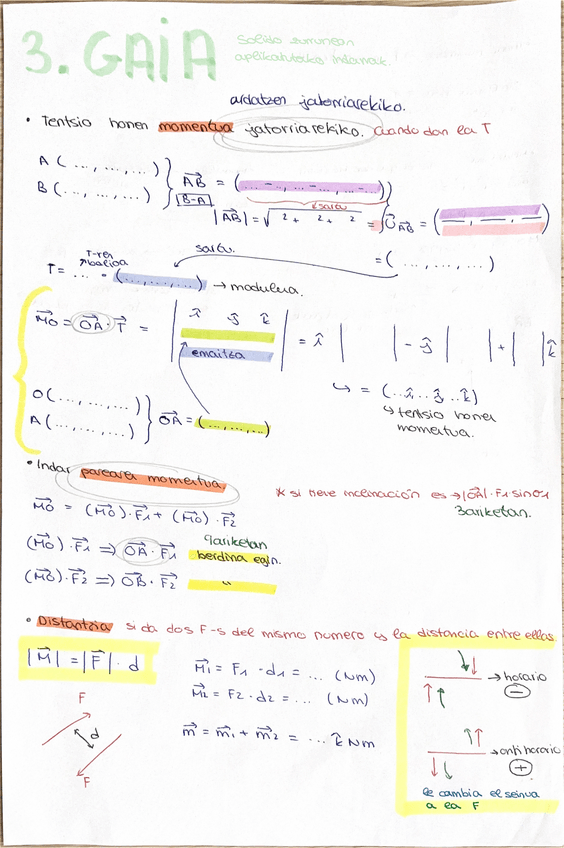 3. GAIA
Solido zurrunean
aplikatutako indarrak.
ardatzen jatorriarekiko.
• Tentsio honen momentua jatorriarekiko. Cuando dan la T
A (..., ..., ...)
B (..., ..., ...)
AB = (... - ..., ... - ..., ... - ...)
B-A
sartu
|AB| = √ 2 + 2 + 2 = U AB = (—, —, —)
sartu.
= (..., ..., ...)
T-ren
balioa
T = ... · (..., ..., ...) → modulua.
Mo = OA · T = | i j k | = i | | - j | | + | | k
emaitza
↪ = (..i ..j ..k)
↪ tentsio honen
momentua.
O (..., ..., ...)
A (..., ..., ...)
OA = (..., ..., ...)
• Indar parearen momentua.
* si tiene inclinación es → |OA| · F1 · sin θ1
3ariketan.
Mo = (Mo) · F1 + (Mo) · F2
(Mo) · F1 => OA · F1
9ariketan
berdina egin.
(Mo) · F2 => OB · F2 "
• Distantzia si da dos F-s del mismo numero y la distancia entre ellas
|M| = |F| · d
M1 = F1 · d1 = ... (Nm)
M2 = F2 · d2 = ... (Nm)
m = m1 + m2 = ... k Nm
F
d
F
→ horario
-
→ antihorario
+
le cambia el seinua
a la F